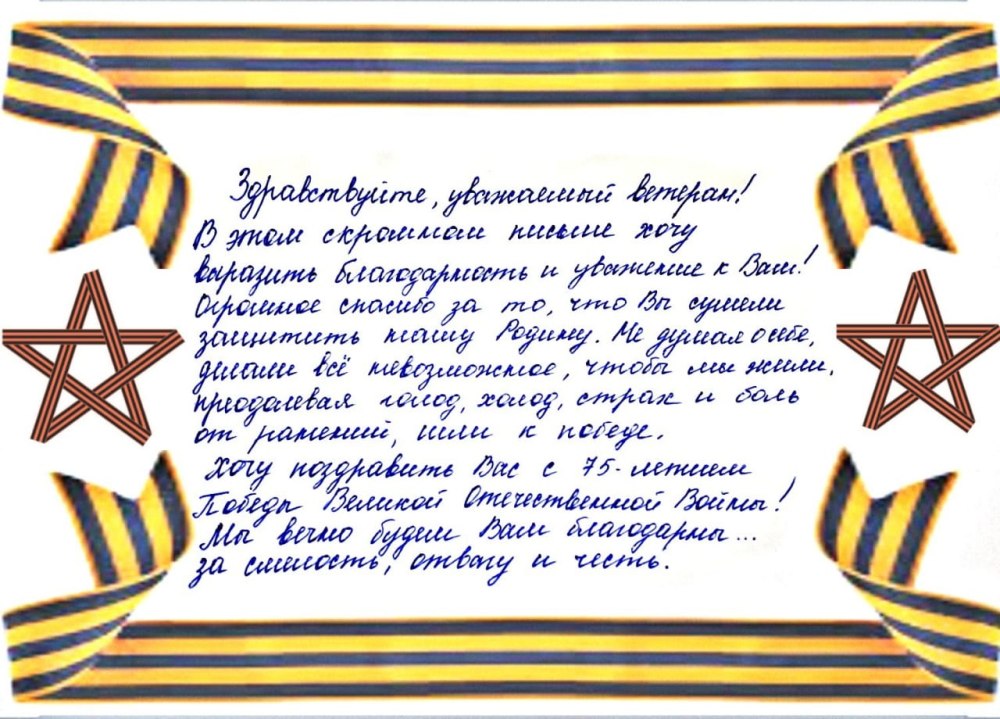 Здравствуйте, уважаемый ветеран!
В этом скромном письме хочу
выразить благодарность и уважение к Вам!
Огромное спасибо за то, что Вы сумели
защитить нашу Родину. Не думая о себе,
делали всё невозможное, чтобы мы жили,
преодолевая голод, холод, страх и боль
от ранений, шли к победе.
Хочу поздравить Вас с 75-летием
Победы Великой Отечественной Войны!
Мы вечно будем Вам благодарны...
за смелость, отвагу и честь.